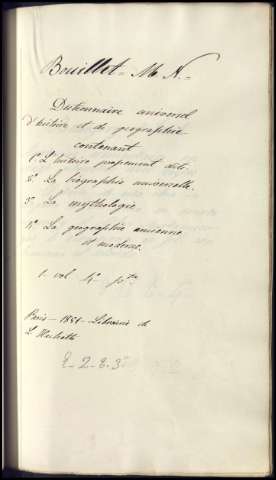 Bouillet - M. N. -
Dictionnaire universel
d'histoire et de géographie
contenant
1° L'histoire proprement dite.
2° La biographie universelle.
3° La mythologie.
4° La géographie ancienne
et moderne.
1 vol 4°
Paris - 1851 - Librairie de
L. Hachette
2-2-8-3